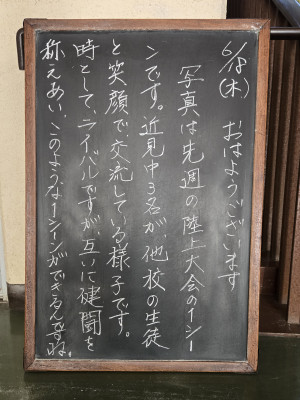 6/18(木) おはようございます
写真は先週の陸上大会の1シー
ンです。近見中3名が他校の生徒
と笑顔で交流している様子です。
時として、ライバルですが、互いに健闘を
称えあい、このような1シーンができるんですね。